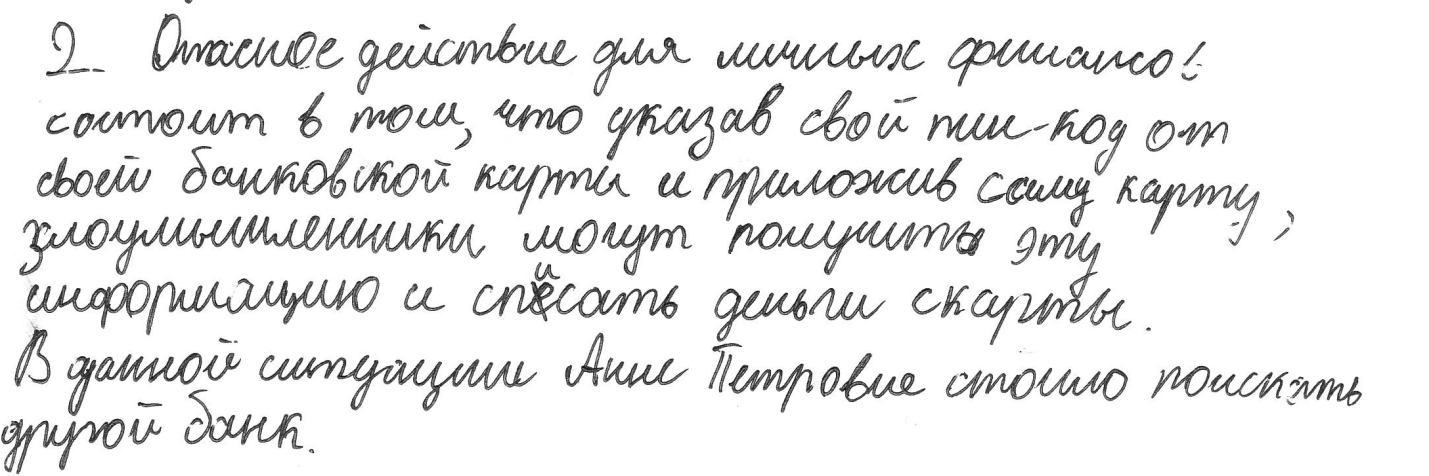 2. Опасное действие для личных финансов
состоит в том, что указав свой пин-код от
своей банковской карты и приложив саму карту,
злоумышленники могут получить эту
информацию и списать деньги с карты.
В данной ситуации Анне Петровне стоило поискать
другой банк.